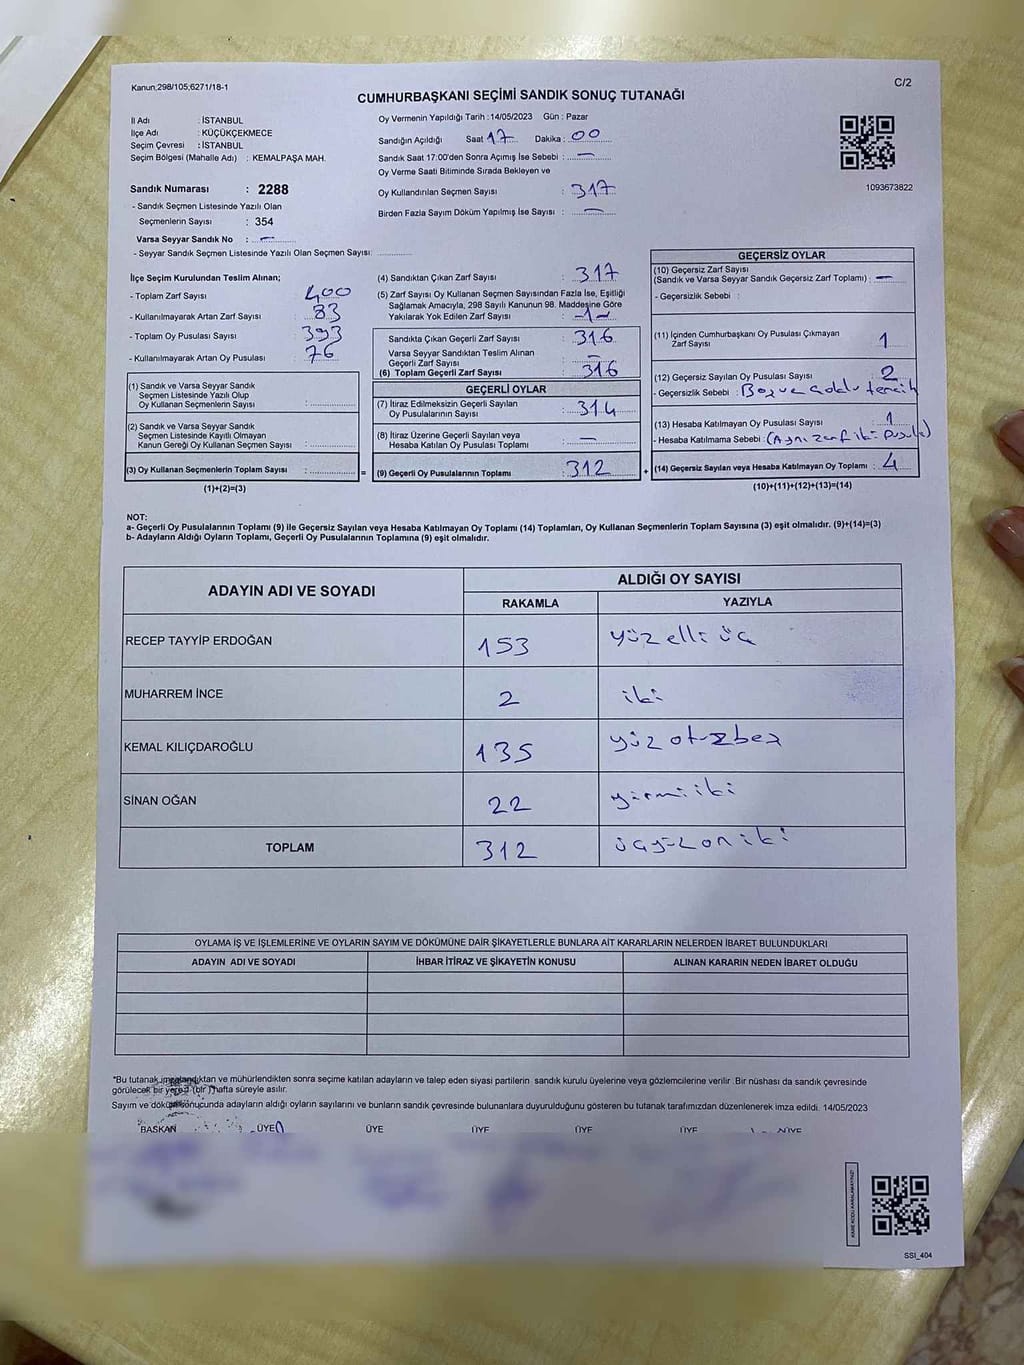 Kanun;298/105;6271/18-1
C/2
CUMHURBAŞKANI SEÇİMİ SANDIK SONUÇ TUTANAĞI
İl Adı : İSTANBUL
İlçe Adı : KÜÇÜKÇEKMECE
Seçim Çevresi : İSTANBUL
Seçim Bölgesi (Mahalle Adı) : KEMALPAŞA MAH.
Sandık Numarası : 2288
- Sandık Seçmen Listesinde Yazılı Olan
Seçmenlerin Sayısı : 354
Varsa Seyyar Sandık No : —
- Seyyar Sandık Seçmen Listesinde Yazılı Olan Seçmen Sayısı:
Oy Vermenin Yapıldığı Tarih :14/05/2023 Gün : Pazar
Sandığın Açıldığı Saat 17 Dakika : 00
Sandık Saat 17:00'den Sonra Açımış İse Sebebi : —
Oy Verme Saati Bitiminde Sırada Bekleyen ve
Oy Kullandırılan Seçmen Sayısı : 317
Birden Fazla Sayım Döküm Yapılmış İse Sayısı : —
1093673822
İlçe Seçim Kurulundan Teslim Alınan;
- Toplam Zarf Sayısı 400
- Kullanılmayarak Artan Zarf Sayısı : 83
- Toplam Oy Pusulası Sayısı : 393
- Kullanılmayarak Artan Oy Pusulası : 76
(1) Sandık ve Varsa Seyyar Sandık
Seçmen Listesinde Yazılı Olup
Oy Kullanan Seçmenlerin Sayısı :
(2) Sandık ve Varsa Seyyar Sandık
Seçmen Listesinde Kayıtlı Olmayan
Kanun Gereği Oy Kullanan Seçmen Sayısı :
(3) Oy Kullanan Seçmenlerin Toplam Sayısı : =
(1)+(2)=(3)
(4) Sandıktan Çıkan Zarf Sayısı : 317
(5) Zarf Sayısı Oy Kullanan Seçmen Sayısından Fazla İse, Eşitliği
Sağlamak Amacıyla, 298 Sayılı Kanunun 98. Maddesine Göre
Yakılarak Yok Edilen Zarf Sayısı : -1-
Sandıkta Çıkan Geçerli Zarf Sayısı : 316
Varsa Seyyar Sandıktan Teslim Alınan
Geçerli Zarf Sayısı : —
(6) Toplam Geçerli Zarf Sayısı : 316
GEÇERLİ OYLAR
(7) İtiraz Edilmeksizin Geçerli Sayılan
Oy Pusulalarının Sayısı : 314
(8) İtiraz Üzerine Geçerli Sayılan veya
Hesaba Katılan Oy Pusulası Toplamı : —
(9) Geçerli Oy Pusulalarının Toplamı : 312 +
GEÇERSİZ OYLAR
(10) Geçersiz Zarf Sayısı
(Sandık ve Varsa Seyyar Sandık Geçersiz Zarf Toplamı) : —
- Geçersizlik Sebebi :
(11) İçinden Cumhurbaşkanı Oy Pusulası Çıkmayan
Zarf Sayısı : 1
(12) Geçersiz Sayılan Oy Pusulası Sayısı : 2
- Geçersizlik Sebebi :
(13) Hesaba Katılmayan Oy Pusulası Sayısı : 1
- Hesaba Katılmama Sebebi : (Aynı zarf iki pusula)
(14) Geçersiz Sayılan veya Hesaba Katılmayan Oy Toplamı : 4
(10)+(11)+(12)+(13)=(14)
NOT:
a- Geçerli Oy Pusulalarının Toplamı (9) ile Geçersiz Sayılan veya Hesaba Katılmayan Oy Toplamı (14) Toplamları, Oy Kullanan Seçmenlerin Toplam Sayısına (3) eşit olmalıdır. (9)+(14)=(3)
b- Adayların Aldığı Oyların Toplamı, Geçerli Oy Pusulalarının Toplamına (9) eşit olmalıdır.
ADAYIN ADI VE SOYADI ALDIĞI OY SAYISI
RAKAMLA YAZIYLA
RECEP TAYYİP ERDOĞAN 153 yüz elli üç
MUHARREM İNCE 2 iki
KEMAL KILIÇDAROĞLU 135 yüz otuzbeş
SİNAN OĞAN 22 yirmi iki
TOPLAM 312 üçyüzoniki
OYLAMA İŞ VE İŞLEMLERİNE VE OYLARIN SAYIM VE DÖKÜMÜNE DAİR ŞİKAYETLERLE BUNLARA AİT KARARLARIN NELERDEN İBARET BULUNDUKLARI
ADAYIN ADI VE SOYADI İHBAR İTİRAZ VE ŞİKAYETİN KONUSU ALINAN KARARIN NEDEN İBARET OLDUĞU
*Bu tutanak imzalandıktan ve mühürlendikten sonra seçime katılan adayların ve talep eden siyasi partilerin sandık kurulu üyelerine veya gözlemcilerine verilir .Bir nüshası da sandık çevresinde
görülecek bir yere 1 (bir ) hafta süreyle asılır.
Sayım ve döküm sonucunda adayların aldığı oyların sayılarını ve bunların sandık çevresinde bulunanlara duyurulduğunu gösteren bu tutanak tarafımızdan düzenlenerek imza edildi. 14/05/2023
BAŞKAN ÜYE ÜYE ÜYE ÜYE ÜYE ÜYE
KARE KODU KARALAMAYINIZ!
SSI_404